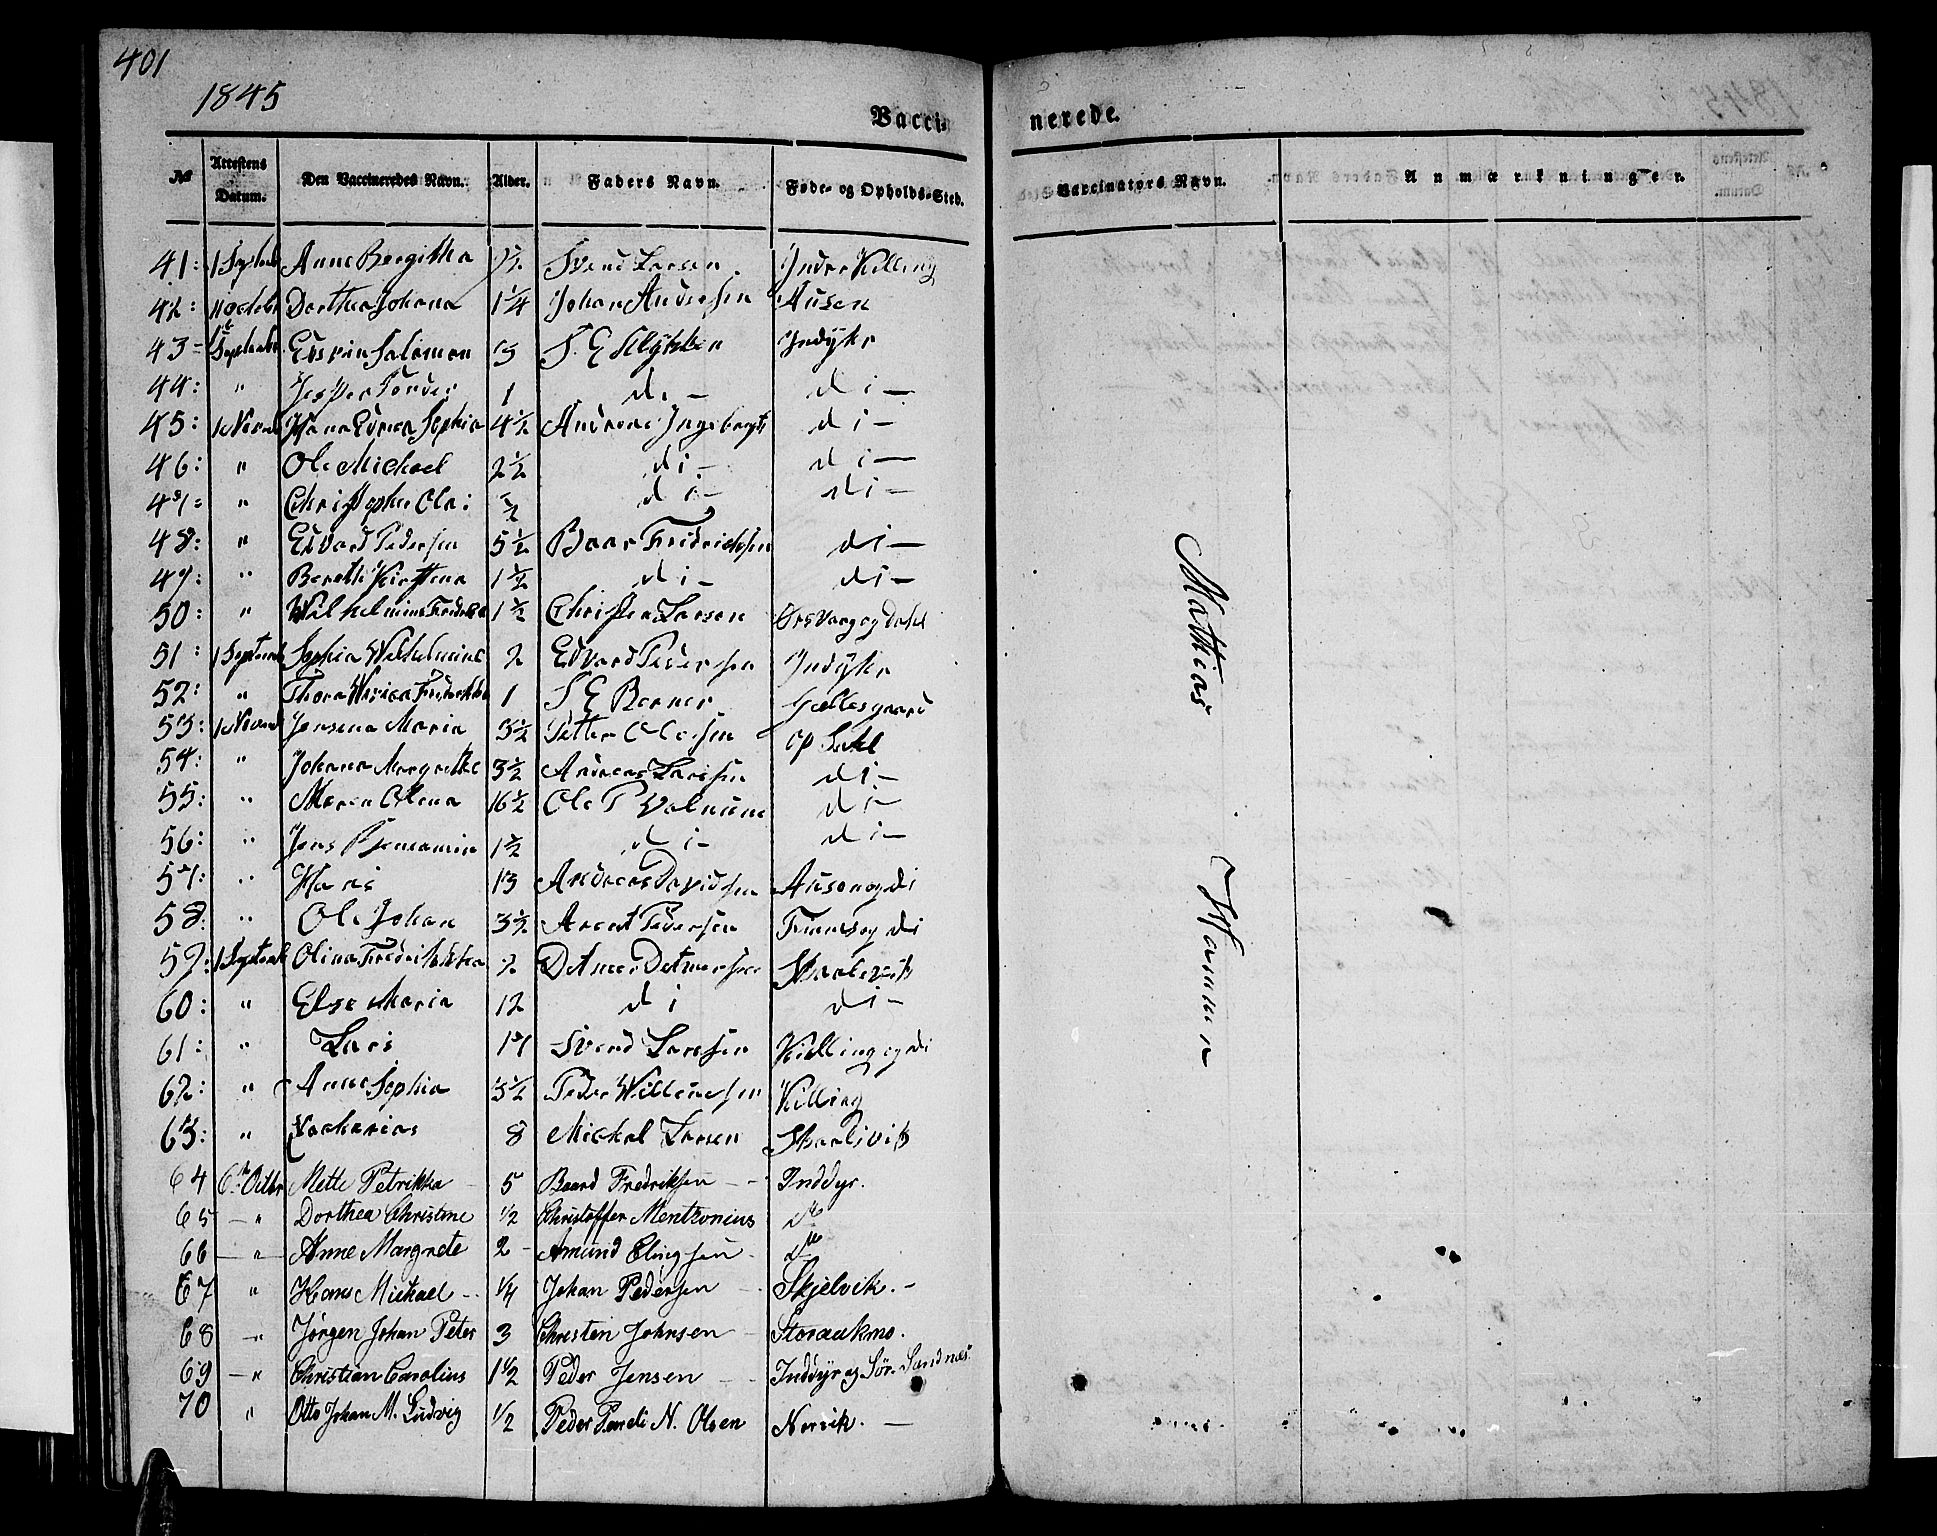 401
1845
Vacci- nerede.
No Attestens Datum. Den Vaccineredes Navn. Alder. Faders Navn. Føde- og Opholds-Sted. Vaccinators Navn. Anmærkninger.
41: 1 Septeb Anne Bergitha Svend Larsen Indre Killing
42: 11 Octobr Dorthea Johana 1 1/4 Johan Andersen Ausen
43 Septembr Edvin Salomon 3 S. E. Indÿhr
44: " Jesper Tønder 1 d. - di -
45: 1 Novemb Hana Edvea Sophia 4 1/2 Andreas Ingebregts di -
46: " Ole Michael 2 1/2 di - di -
47: " Christopher Olai 1/2 di - di -
48: " Edvard Pedersen 5 1/2 Baar Fridrichsen di -
49: " Bereth Kirstina 1 1/2 di - di -
50: " Wilhelmine Fredrikka 1 1/2 Christen Larsen Ørsvaag og Dahl
51: 1 Septemb Sophia Wilhelmine 2 Edvard Pedersen Indÿhr
52: " Thora Fredrikka 1 S E Berner Gellesgaard
53: 1 Novemb Jensina Maria 3 1/2 Petter Olesen opSahl
54: " Johana Margrethe 3 1/2 Andreas Larssen di -
55: " Maren Olena 16 1/2 Ole P Valnum di -
56: " Jens Benjamin 1 1/2 di - di -
57: " Hans 13 Andreas Davidsen Ausen og di
58: " Ole Johan 3 1/2 Arent Pedersen og di
59: 1 Septemb Olina Fredrikkka 2 Detmer Detmersen Skaalsvik
60: " Else Maria 12 di di -
61: " Lars 17 Svend Larssen Killing og di
62: " Anne Sophia 3 1/2 Peder Willumsen Killing
63: " Zacharias 8 Mickal Larsen Skaalsvik
64 6te Octbr Mette Petrikka - 5 Baard Fredriksen - - Inddyr.
65 - " Dorthea Christine 1/2 Christoffer Mentzonius do
66 - " - Anne Margrete 2 - Amund Elingsen - do
67 " Hans Mickael - - 1/4 Johan Pedersen - Skjelvik. -
68 - " Jørgen Johan Peter 3 Christen Johnsen - Storaakmo.
69 - " Christian Carolius 1 1/2 Peder Jensen - - Inddyr og Sør-Sandnæs.
70 " Otto Johan M. Ludvig 1/2 Peder Pareli N. Olsen Norvik. -
Mathias Hammer